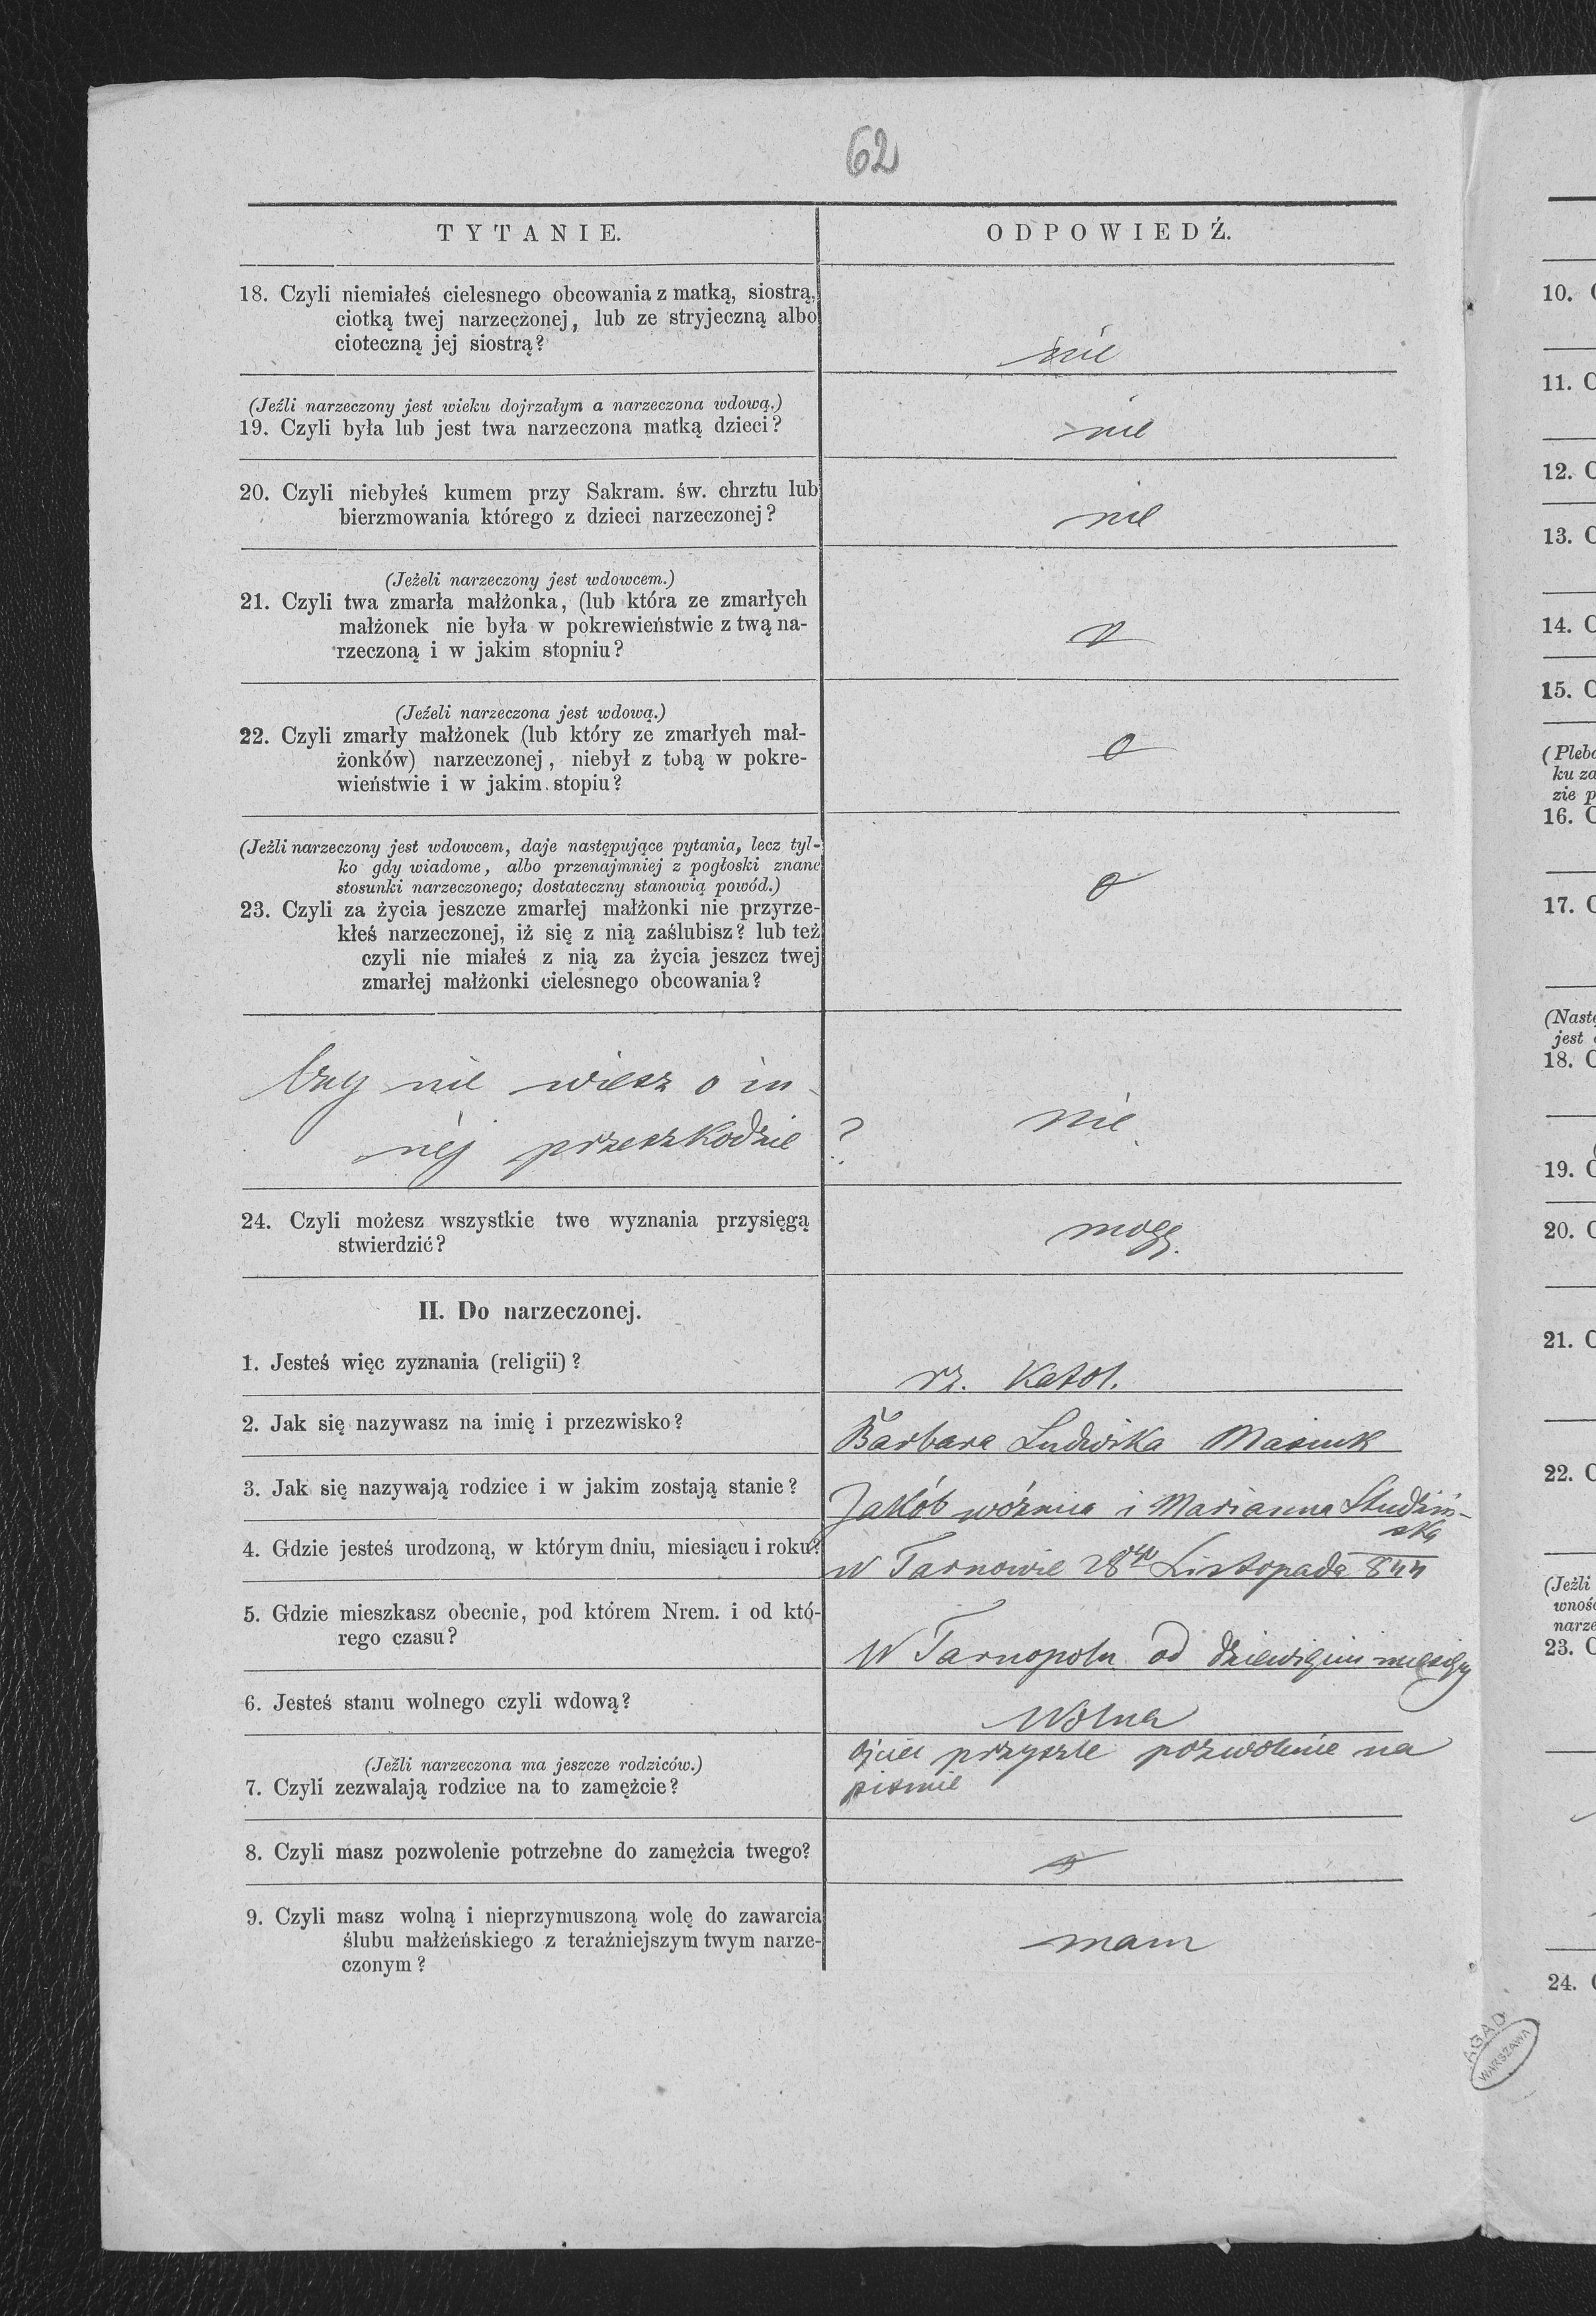 62
TYTANIE.
ODPOWIEDŹ.
18. Czyli niemiałeś cielesnego obcowania z matką, siostrą,
ciotką twej narzeczonej, lub ze stryjeczną albo
cioteczną jej siostrą?
nie
(Jeźli narzeczony jest wieku dojrzałym a narzeczona wdową.)
19. Czyli była lub jest twa narzeczona matką dzieci?
nie
20. Czyli niebyłeś kumem przy Sakram. św. chrztu lub
bierzmowania którego z dzieci narzeczonej?
nie
(Jeżeli narzeczony jest wdowcem.)
21. Czyli twa zmarła małżonka, (lub która ze zmarłych
małżonek nie była w pokrewieństwie z twą na-
rzeczoną i w jakim stopniu?
(Jeżeli narzeczona jest wdową.)
22. Czyli zmarły małżonek (lub który ze zmarłych mał-
żonków) narzeczonej, niebył z tobą w pokre-
wieństwie i w jakim stopiu?
(Jeźli narzeczony jest wdowcem, daje następujące pytania, lecz tyl-
ko gdy wiadome, albo przenajmniej z pogłoski znane
stosunki narzeczonego; dostateczny stanowią powód.)
23. Czyli za życia jeszcze zmarłej małżonki nie przyrze-
kłeś narzeczonej, iż się z nią zaślubisz? lub też
czyli nie miałeś z nią za życia jeszcz twej
zmarłej małżonki cielesnego obcowania?
Czy nie wiesz o in-
néj przeszkodzie ?
nie
24. Czyli możesz wszystkie twe wyznania przysięgą
stwierdzić?
mogę.
II. Do narzeczonej.
1. Jesteś więc zyznania (religii)?
rz. Katol.
2. Jak się nazywasz na imię i przezwisko?
Barbara Ludwika
3. Jak się nazywają rodzice i w jakim zostają stanie?
Jakób woźnica i Marianna Studziń-
ska
4. Gdzie jesteś urodzoną, w którym dniu, miesiącu i roku?
w Tarnowie 28go Listopada 844
5. Gdzie mieszkasz obecnie, pod którem Nrem. i od któ-
rego czasu?
W Tarnopolu od dziewięciu miesięcy
6. Jesteś stanu wolnego czyli wdową?
Wolna
(Jeźli narzeczona ma jeszcze rodziców.)
7. Czyli zezwalają rodzice na to zamężcie?
Ojciec przyszle pozwolenie na
pismie
8. Czyli masz pozwolenie potrzebne do zamężcia twego?
9. Czyli masz wolną i nieprzymuszoną wolę do zawarcia
ślubu małżeńskiego z teraźniejszym twym narze-
czonym?
mam
10.
11. C
12. C
13. C
14. C
15. C
(Pleb
ku za
zie p
16. C
17. C
(Nast
jest
18. C
19. C
20. C
21. C
22. C
(Jeźli
wnoś
narze
23. C
24.
AGAD
WARSZAWA